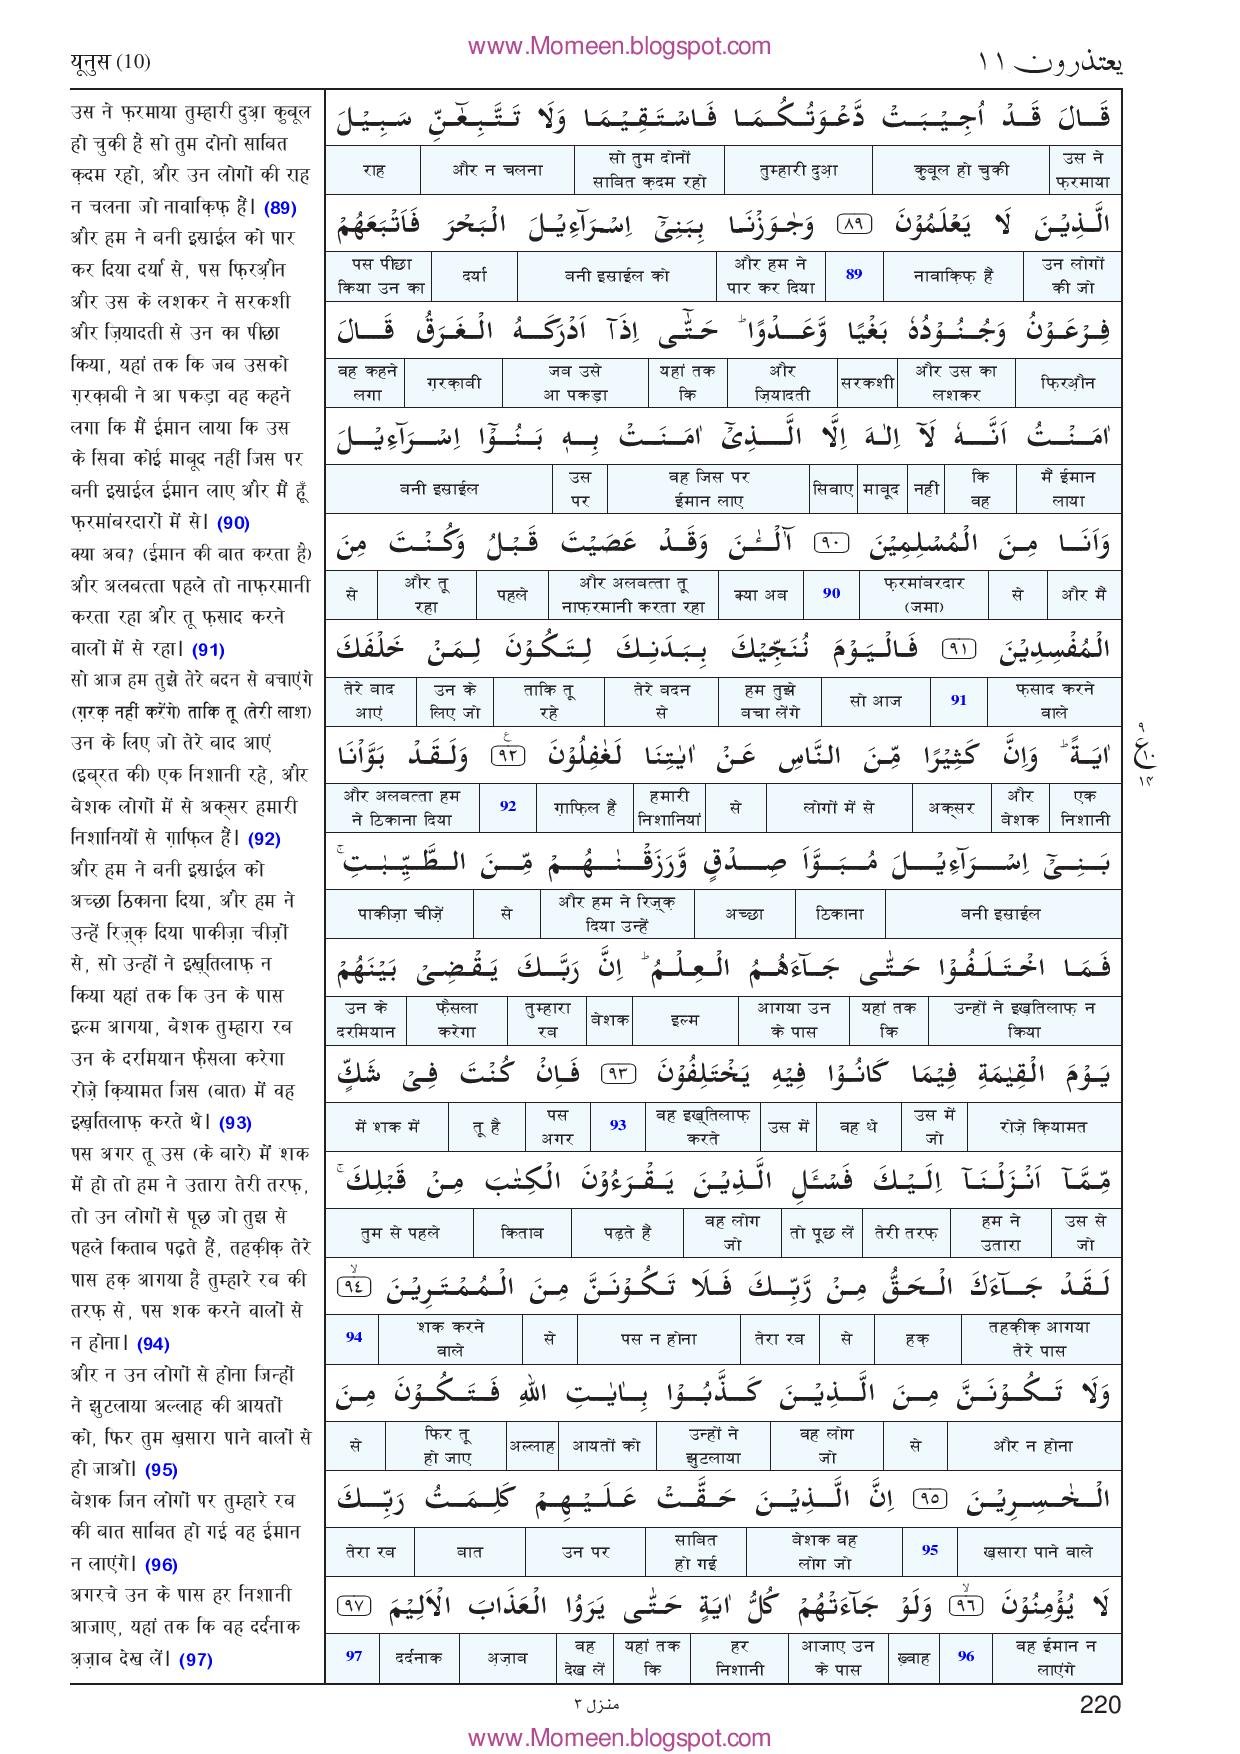 www.Momeen.blogspot.com
यूनुस (10)
يعتذرون ١١
उस ने फ़रमाया तुम्हारी दुआ़ कुबूल
हो चुकी है सो तुम दोनो साबित
क़दम रहो, और उन लोगों की राह
न चलना जो नावाक़िफ़ हैं। (89)
और हम ने बनी इस्राईल को पार
कर दिया दर्या से, पस फ़िरऔ़न
और उस के लशकर ने सरकशी
और ज़ियादती से उन का पीछा
किया, यहां तक कि जब उसको
ग़रक़ाबी ने आ पकड़ा वह कहने
लगा कि मैं ईमान लाया कि उस
के सिवा कोई माबूद नहीं जिस पर
बनी इस्राईल ईमान लाए और मैं हूँ
फ़रमांबरदारों में से। (90)
क्या अब? (ईमान की बात करता है)
और अलबत्ता पहले तो नाफ़रमानी
करता रहा और तू फ़साद करने
वालों में से रहा। (91)
सो आज हम तुझे तेरे बदन से बचाएंगे
(ग़रक़ नहीं करेंगे) ताकि तू (तेरी लाश)
उन के लिए जो तेरे बाद आएं
(इब्रत की) एक निशानी रहे, और
बेशक लोगों में से अक्सर हमारी
निशानियों से ग़ाफ़िल हैं। (92)
और हम ने बनी इस्राईल को
अच्छा ठिकाना दिया, और हम ने
उन्हें रिज़्क़ दिया पाकीज़ा चीज़ों
से, सो उन्हों ने इख़्तिलाफ़ न
किया यहां तक कि उन के पास
इल्म आगया, बेशक तुम्हारा रब
उन के दरमियान फ़ैसला करेगा
रोज़े क़ियामत जिस (बात) में वह
इख़्तिलाफ़ करते थे। (93)
पस अगर तू उस (के बारे) में शक
में हो तो हम ने उतारा तेरी तरफ़,
तो उन लोगों से पूछ जो तुझ से
पहले किताब पढ़ते हैं, तहक़ीक़ तेरे
पास हक़ आगया है तुम्हारे रब की
तरफ़ से, पस शक करने वालों से
न होना। (94)
और न उन लोगों से होना जिन्हों
ने झुटलाया अल्लाह की आयतों
को, फिर तुम ख़सारा पाने वालों से
हो जाओ। (95)
बेशक जिन लोगों पर तुम्हारे रब
की बात साबित हो गई वह ईमान
न लाएंगे। (96)
अगरचे उन के पास हर निशानी
आजाए, यहां तक कि वह दर्दनाक
अ़ज़ाब देख लें। (97)
قَالَ قَدْ اُجِيْبَتْ دَّعْوَتُكُمَا فَاسْتَقِيْمَا وَلَا تَتَّبِعٰٓنِّ سَبِيْلَ
उस ने फ़रमाया | कुबूल हो चुकी | तुम्हारी दुआ़ | सो तुम दोनों साबित क़दम रहो | और न चलना | राह
الَّذِيْنَ لَا يَعْلَمُوْنَ ٨٩ وَجٰوَزْنَا بِبَنِيْٓ اِسْرَآءِيْلَ الْبَحْرَ فَاَتْبَعَهُمْ
उन लोगों की जो | नावाक़िफ़ है | 89 | और हम ने पार कर दिया | बनी इस्राईल को | दर्या | पस पीछा किया उन का
فِرْعَوْنُ وَجُنُوْدُهٗ بَغْيًا وَّعَدْوًا ؕ حَتّٰٓى اِذَآ اَدْرَكَهُ الْغَرَقُ قَالَ
फ़िरऔ़न | और उस का लशकर | सरकशी | और ज़ियादती | यहां तक कि | जब उसे आ पकड़ा | ग़रक़ाबी | वह कहने लगा
اٰمَنْتُ اَنَّهٗ لَآ اِلٰهَ اِلَّا الَّذِيْٓ اٰمَنَتْ بِهٖ بَنُوْٓا اِسْرَآءِيْلَ
मैं ईमान लाया | कि वह | नहीं | माबूद | सिवाए | वह जिस पर ईमान लाए | उस पर | बनी इस्राईल
وَاَنَا مِنَ الْمُسْلِمِيْنَ ٩٠ آٰلْـٰٔنَ وَقَدْ عَصَيْتَ قَبْلُ وَكُنْتَ مِنَ
और मैं | से | फ़रमांबरदार (जमा) | 90 | क्या अब | और अलबत्ता तू नाफ़रमानी करता रहा | पहले | और तू रहा | से
الْمُفْسِدِيْنَ ٩١ فَالْيَوْمَ نُنَجِّيْكَ بِبَدَنِكَ لِتَكُوْنَ لِمَنْ خَلْفَكَ
फ़साद करने वाले | 91 | सो आज | हम तुझे बचा लेंगे | तेरे बदन से | ताकि तू रहे | उन के लिए जो | तेरे बाद आएं
اٰيَةً ؕ وَاِنَّ كَثِيْرًا مِّنَ النَّاسِ عَنْ اٰيٰتِنَا لَغٰفِلُوْنَ ٩٢ ع وَلَقَدْ بَوَّاْنَا
एक निशानी | और बेशक | अक्सर | लोगों में से | से | हमारी निशानियां | ग़ाफ़िल है | 92 | और अलबत्ता हम ने ठिकाना दिया
٩ ع ١٠ ١٤
بَنِيْٓ اِسْرَآءِيْلَ مُبَوَّاَ صِدْقٍ وَّرَزَقْنٰهُمْ مِّنَ الطَّيِّبٰتِ ۚ
बनी इस्राईल | ठिकाना | अच्छा | और हम ने रिज़्क़ दिया उन्हें | से | पाकीज़ा चीज़ें
فَمَا اخْتَلَفُوْا حَتّٰى جَآءَهُمُ الْعِلْمُ ؕ اِنَّ رَبَّكَ يَقْضِيْ بَيْنَهُمْ
उन्हों ने इख़्तिलाफ़ न किया | यहां तक कि | आगया उन के पास | इल्म | बेशक | तुम्हारा रब | फ़ैसला करेगा | उन के दरमियान
يَوْمَ الْقِيٰمَةِ فِيْمَا كَانُوْا فِيْهِ يَخْتَلِفُوْنَ ٩٣ فَاِنْ كُنْتَ فِيْ شَكٍّ
रोज़े क़ियामत | उस में जो | वह थे | उस में | वह इख़्तिलाफ़ करते | 93 | पस अगर | तू है | में शक में
مِّمَّآ اَنْزَلْنَآ اِلَيْكَ فَسْـَٔلِ الَّذِيْنَ يَقْرَءُوْنَ الْكِتٰبَ مِنْ قَبْلِكَ ۚ
उस से जो | हम ने उतारा | तेरी तरफ़ | तो पूछ लें | वह लोग जो | पढ़ते हैं | किताब | तुम से पहले
لَقَدْ جَآءَكَ الْحَقُّ مِنْ رَّبِّكَ فَلَا تَكُوْنَنَّ مِنَ الْمُمْتَرِيْنَ ٩٤ ۙ
तहक़ीक़ आगया तेरे पास | हक़ | से | तेरा रब | पस न होना | से | शक करने वाले | 94
وَلَا تَكُوْنَنَّ مِنَ الَّذِيْنَ كَذَّبُوْا بِاٰيٰتِ اللّٰهِ فَتَكُوْنَ مِنَ
और न होना | से | वह लोग जो | उन्हों ने झुटलाया | आयतों को | अल्लाह | फिर तू हो जाए | से
الْخٰسِرِيْنَ ٩٥ اِنَّ الَّذِيْنَ حَقَّتْ عَلَيْهِمْ كَلِمَتُ رَبِّكَ
ख़सारा पाने वाले | 95 | बेशक वह लोग जो | साबित हो गई | उन पर | बात | तेरा रब
لَا يُؤْمِنُوْنَ ٩٦ ۙ وَلَوْ جَآءَتْهُمْ كُلُّ اٰيَةٍ حَتّٰى يَرَوُا الْعَذَابَ الْاَلِيْمَ ٩٧
वह ईमान न लाएंगे | 96 | ख़्वाह | आजाए उन के पास | हर निशानी | यहां तक कि | वह देख लें | अ़ज़ाब | दर्दनाक | 97
منزل ٣
220
www.Momeen.blogspot.com